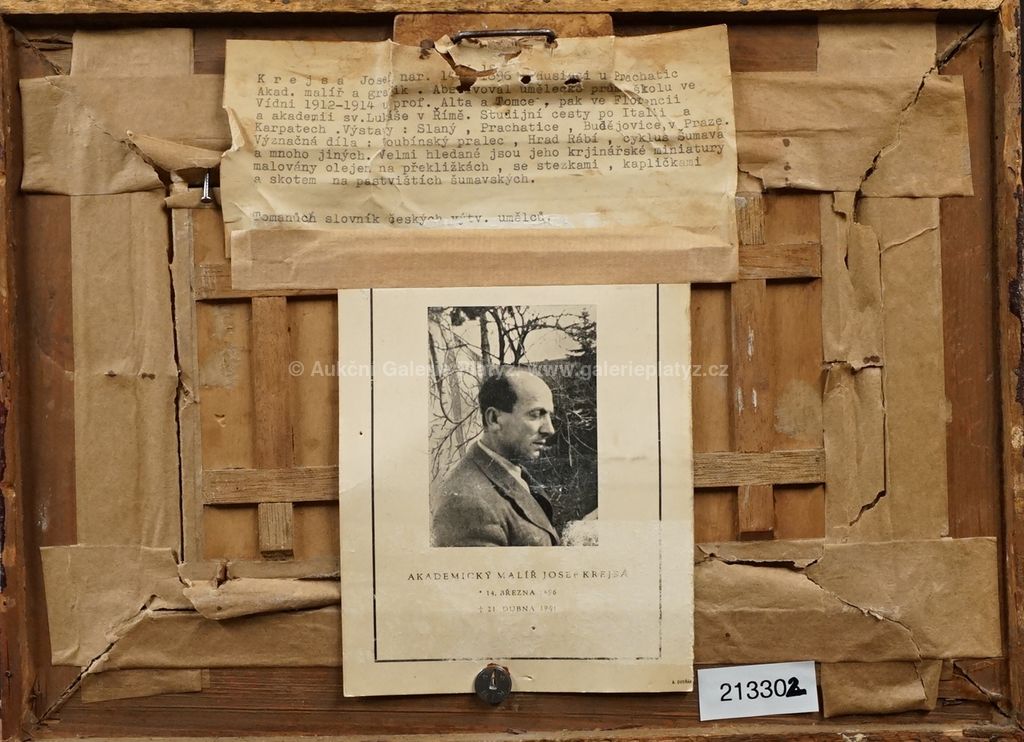 Krejsa Josef nar. 14. 1896 Husinci u Prachatic
Akad. malíř a grafik . Absolvoval umělecko prům školu ve
Vídni 1912-1914 u prof. Alta a Tomce , pak ve Florencii
a akademii sv.Lukáše v Římě. Studijní cesty po Itálii a
Karpatech .Výstavy : Slaný , Prachatice , Budějovice,v Praze.
Význačná díla : Boubínský prales , Hrad Rábí , cyklus Šumava
a mnoho jiných. Velmi hledané jsou jeho krjinářské miniatury
malovány olejem na překližkách , se stezkami , kapličkami
a skotem na pastvištích šumavských.
Tomanůch slovník českých výtv. umělců.
© Aukční Galerie Platýz, www.galerieplatyz.cz
AKADEMICKÝ MALÍŘ JOSEF KREJSA
* 14. BŘEZNA 1896
† 21. DUBNA 1941
213302